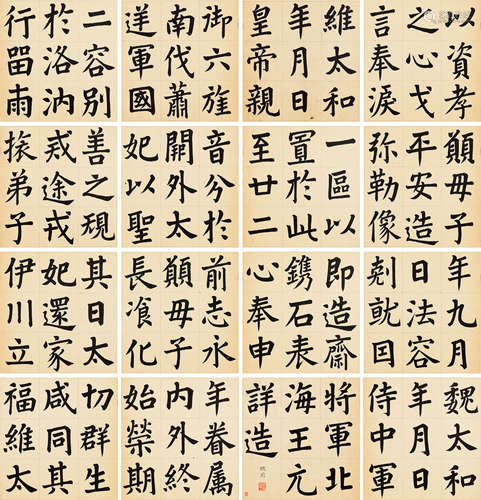 維太和
年月日
皇帝親
御六旌
南伐蕭
逆軍國
二容別
於洛汭
行留雨
音兮於
關外太
妃以聖
善之規
戎途戎
挔弟子
以資孝
之心戈
言奉淚
其日太
妃還家
伊川立
願毋子
平安造
弥勒像
一區以
置於此
至廿二
年九月
日法容
剋就囙
即造齋
鐫石表
心奉申
前志永
願毋子
長飡化
年眷属
内外終
始榮期
切群生
咸同其
福維太
魏太和
年月日
侍中軍
將軍北
海王元
詳造